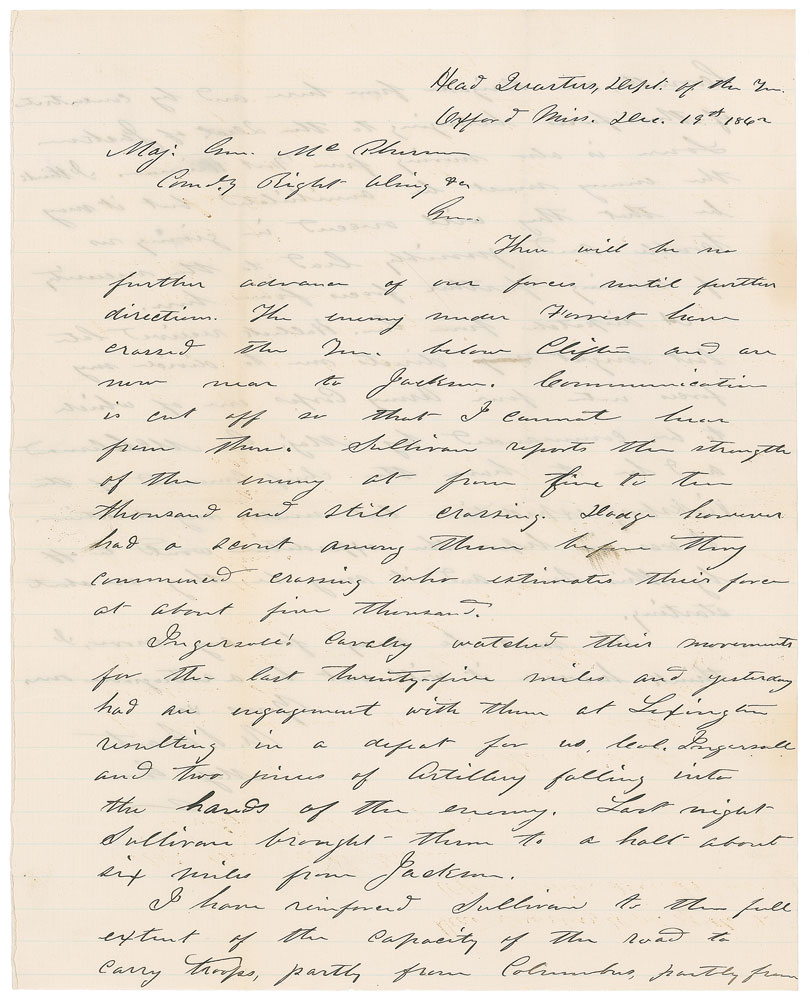 Head Quarters, Dept. of the Ten.
Oxford Miss. Dec. 19th 1862
Maj. Gen. McPherson
Comd.g Right Wing &c
Gen.
There will be no
further advance of our forces until further
direction. The enemy under Forrest have
crossed the Ten. below Clifton and are
now near to Jackson. Communication
is cut off so that I cannot hear
from there. Sullivan reports the strength
of the enemy at from five to ten
thousand and still crossing. Dodge however
had a scout among them before they
commenced crossing who estimates their force
at about five thousand.
Ingersoll's Cavalry watched their movements
for the last twenty-five miles and yesterday
had an engagement with them at Lexington
resulting in a defeat for us, Col. Ingersoll
and two pieces of Artillery falling into
the hands of the enemy. Last night
Sullivan brought them to a halt about
six miles from Jackson.
I have reinforced Sullivan to the full
extent of the capacity of the road to
carry troops, partly from Columbus, partly from